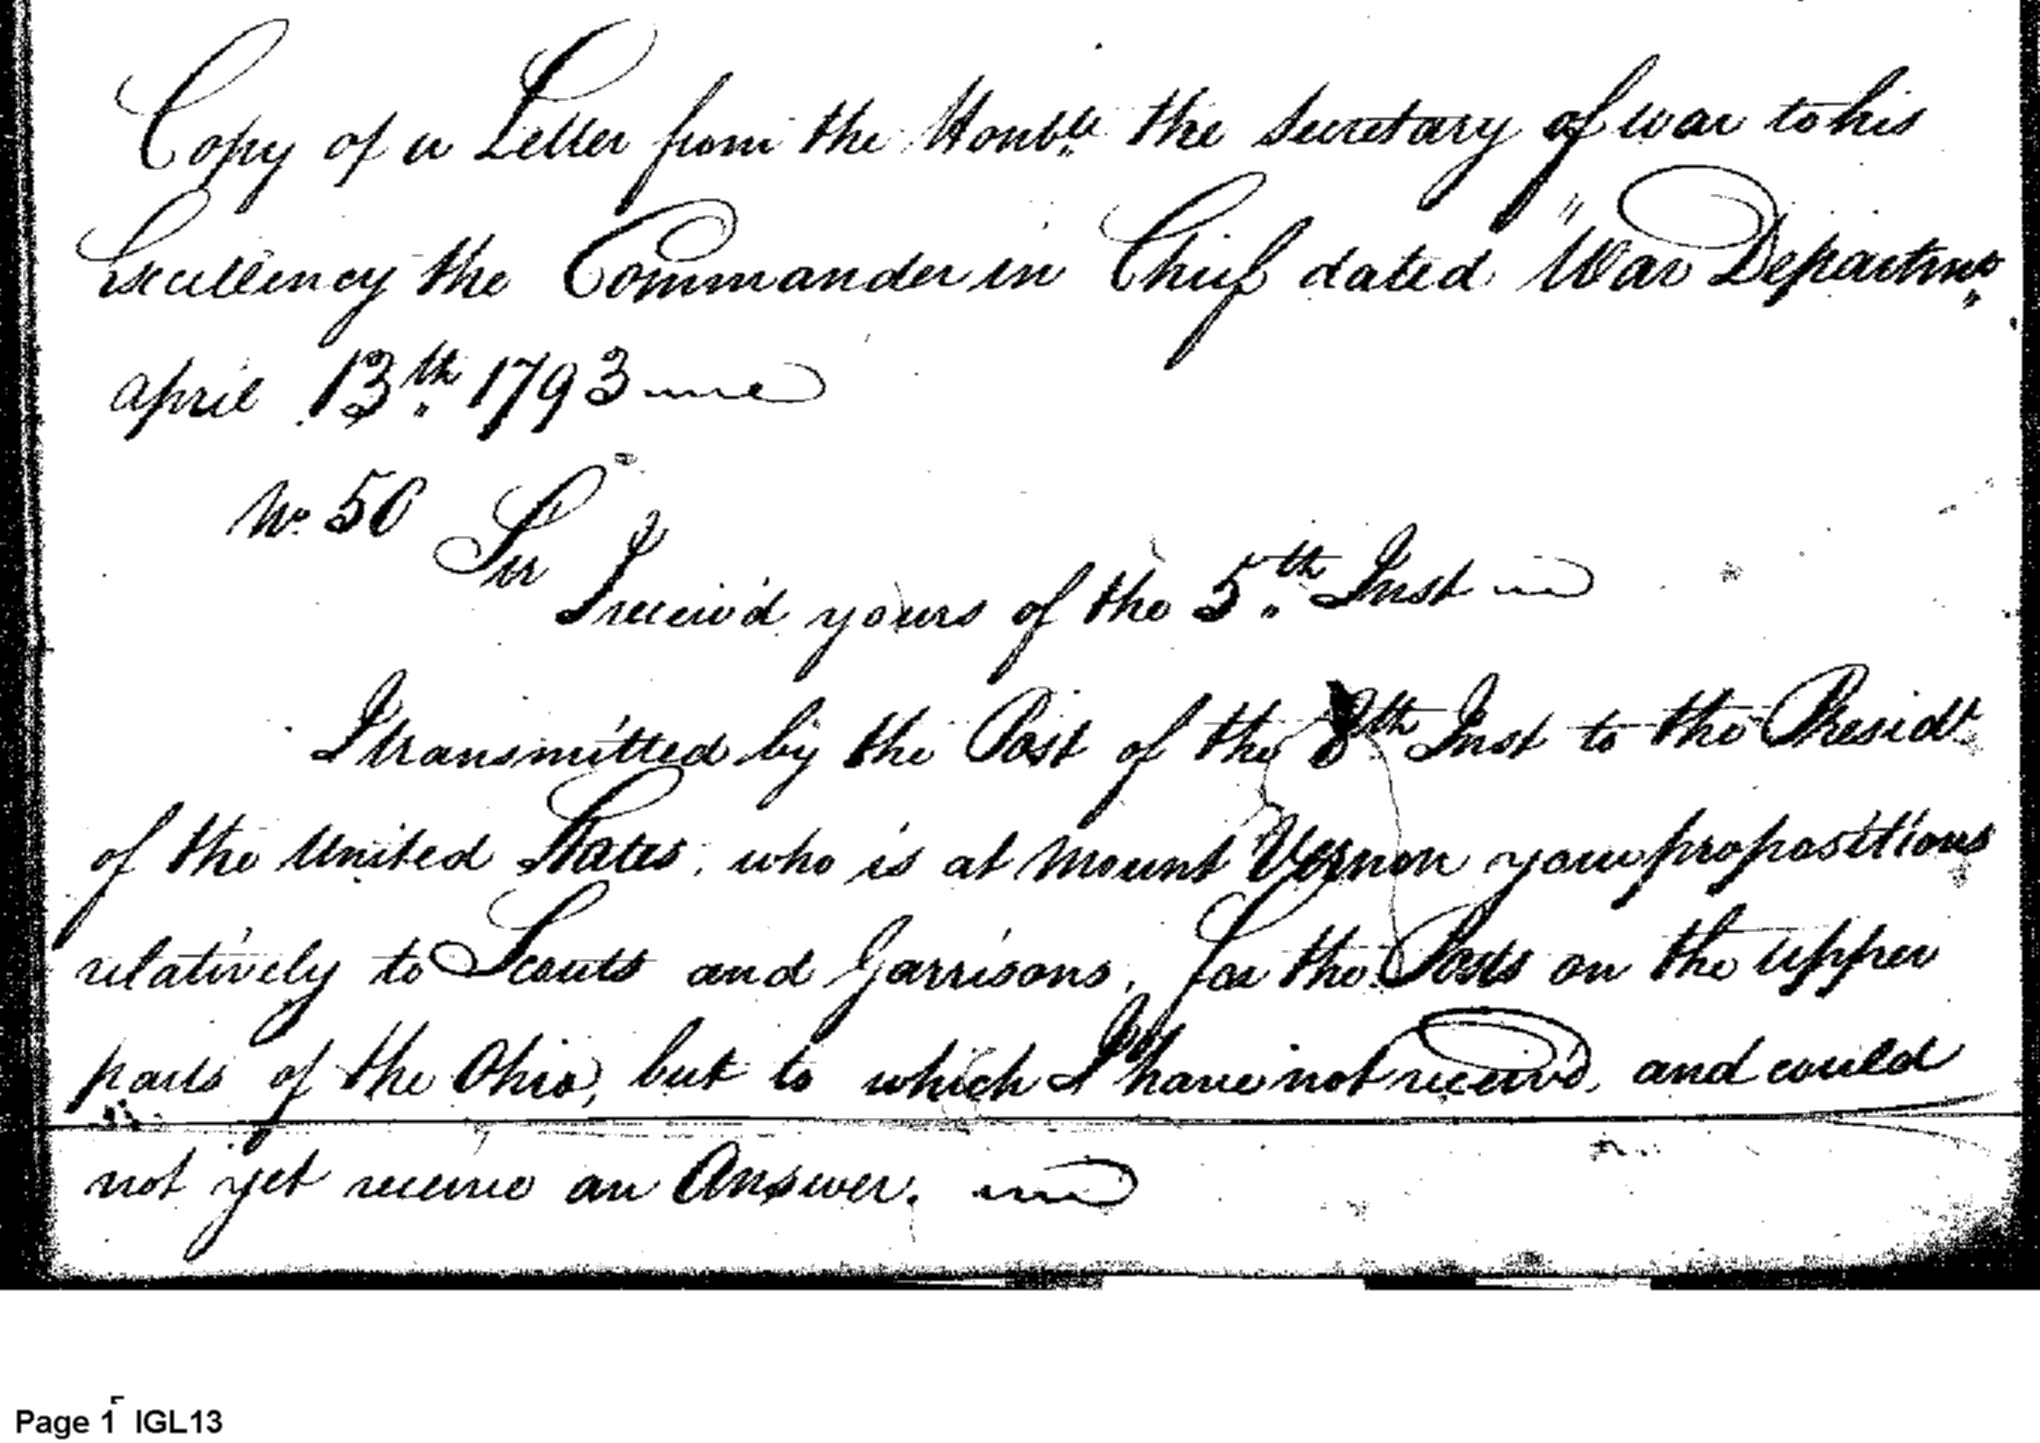 Copy of a Letter from the Honble. the Secretary of war to his
Excellency the Commander in Chief dated War Departmt.
april 13th. 1793
No. 50 Sir
I receiv'd yours of the 5th. Inst
I transmitted by the Post of the 8th Inst to the Presidt.
of the United States, who is at Mount Vernon your propositions
relatively to Scouts and Garrisons, for the Posts on the upper
parts of the Ohio, but to which I have not receiv'd, and could
not yet receive an Answer.
Page 1 IGL13